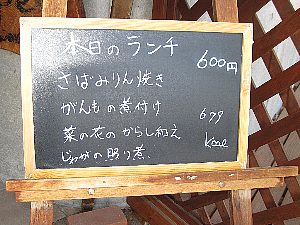 本日のランチ 600円
さばみりん焼き
がんもの煮付け 679
菜の花のからし和え Kcal
じゃがの照り煮.